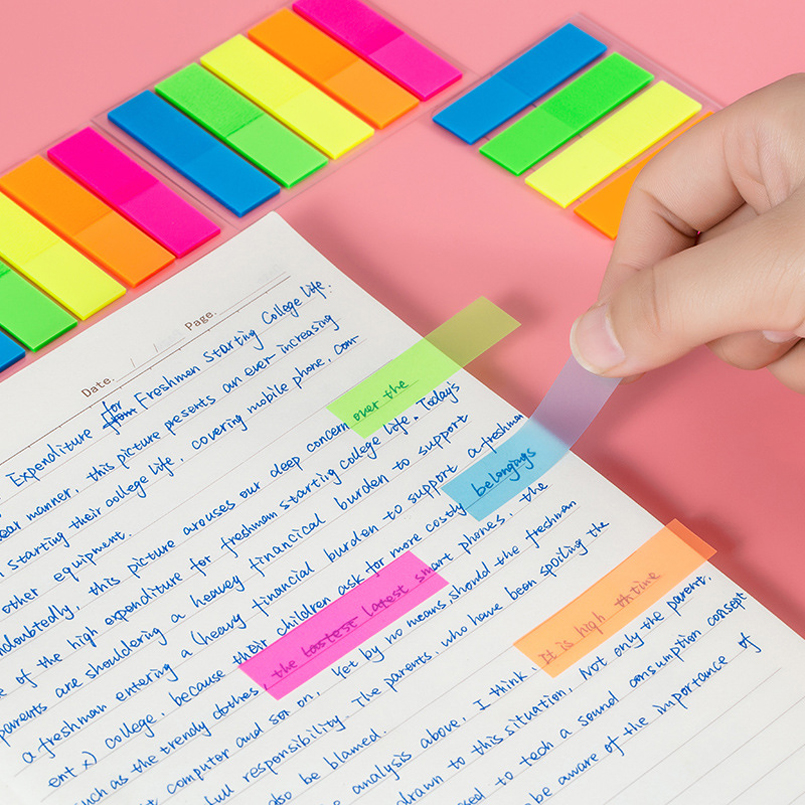 Date. / / Page.
Expenditure for Freshmen Starting College life.
ear manner, this picture presents an ever increasing
starting their college life, covering mobile phone, com
other equipment.
ndoubtedly, this picture arouses our deep concern over the
e of the high expenditure for freshman starting college life. Todays
parents are shouldering a heavey financical burden to support
a freshman entering a (heavy financial burden to support a freshman
ent x) college, because their children ask for more costly belongings
such as the trendy clothes, the lastest latest smart phones, the
t computer and so on. Yet by no means, should the freshman
full responsibility. The parents, who have been spoiling the
lso be blamed.
analysis above, I think. It is high thtine
drawn to this situation, Not only the parent,
ed to tech a sound consumption consept
be aware of the importance of